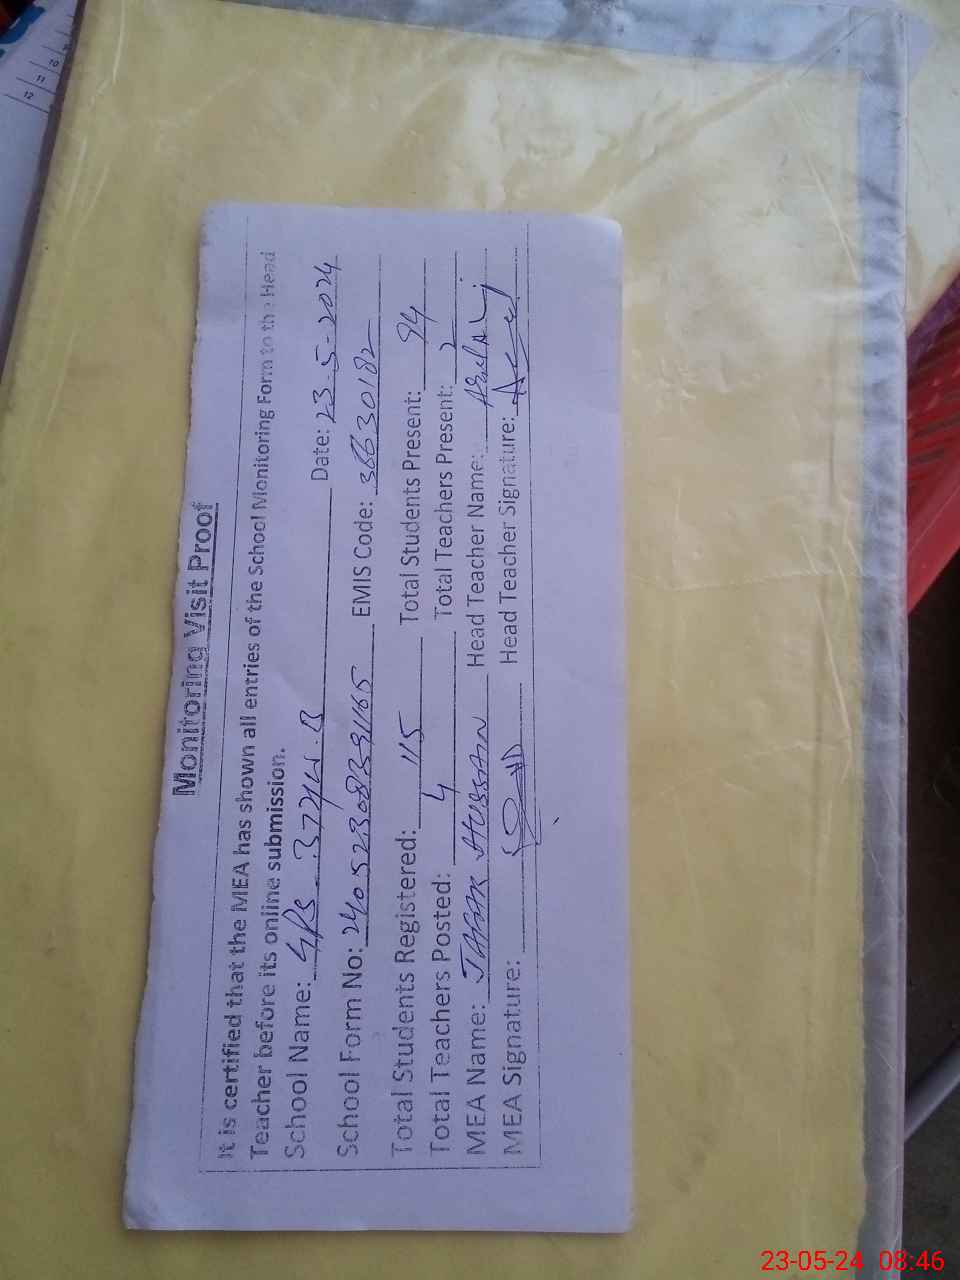 Monitoring Visit Proof
It is certified that the MEA has shown all entries of the School Monitoring Form to the Head
Teacher before its online submission.
School Name: GPS 374W.B Date: 23-5-2024
School Form No: 24052308391165 EMIS Code: 36630182
Total Students Registered: 115 Total Students Present: 94
Total Teachers Posted: 4 Total Teachers Present: 2
MEA Name: JAFAR HUSSAIN Head Teacher Name:
MEA Signature: Head Teacher Signature:
10
11
12
23-05-24 08:46